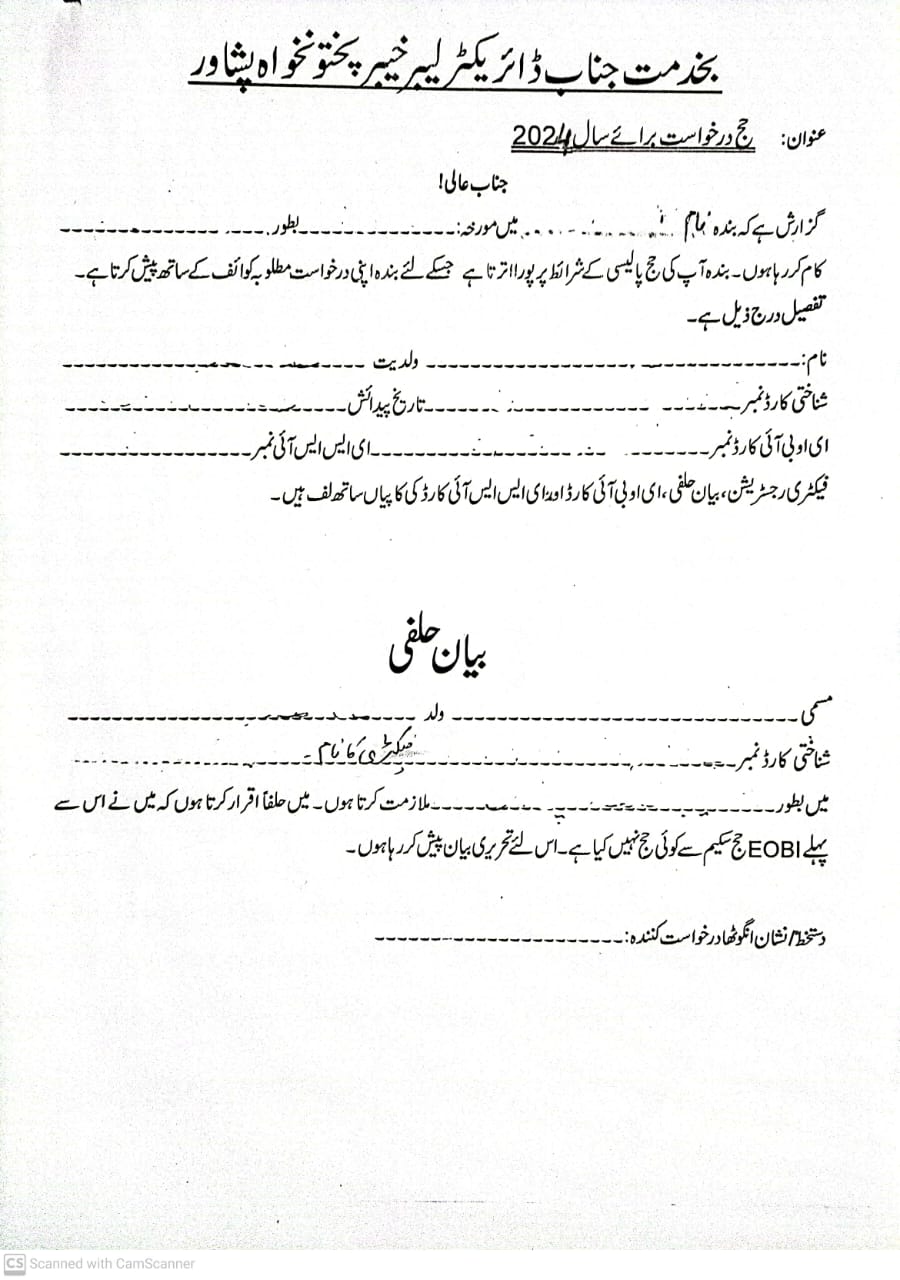 بخدمت جناب ڈائریکٹر لیبر خیبر پختونخواہ پشاور
عنوان: حج درخواست برائے سال 2024
جناب عالی!
گزارش ہے کہ بندہ نام ------------ میں مورخہ: ------------ بطور ------------
کام کر رہا ہوں۔ بندہ آپ کی حج پالیسی کے شرائط پر پورا اترتا ہے جسکے لئے بندہ اپنی درخواست مطلوبہ کوائف کے ساتھ پیش کرتا ہے۔
تفصیل درج ذیل ہے۔
نام: ------------ ولدیت ------------
شناختی کارڈ نمبر ------------ تاریخ پیدائش ------------
ای او بی آئی کارڈ نمبر ------------ ای ایس ایس آئی نمبر ------------
فیکٹری رجسٹریشن، بیان حلفی، ای او بی آئی کارڈ اور ای ایس ایس آئی کارڈ کی کاپیاں ساتھ لف ہیں۔
بیان حلفی
مسمی ------------ ولد ------------
شناختی کارڈ نمبر ------------ فیکٹری کا نام ------------
میں بطور ------------ ملازمت کرتا ہوں۔ میں حلفاً اقرار کرتا ہوں کہ میں نے اس سے
پہلے EOBI حج سکیم سے کوئی حج نہیں کیا ہے۔ اس لئے تحریری بیان پیش کر رہا ہوں۔
دستخط/نشان انگوٹھا درخواست کنندہ: ------------
CS Scanned with CamScanner